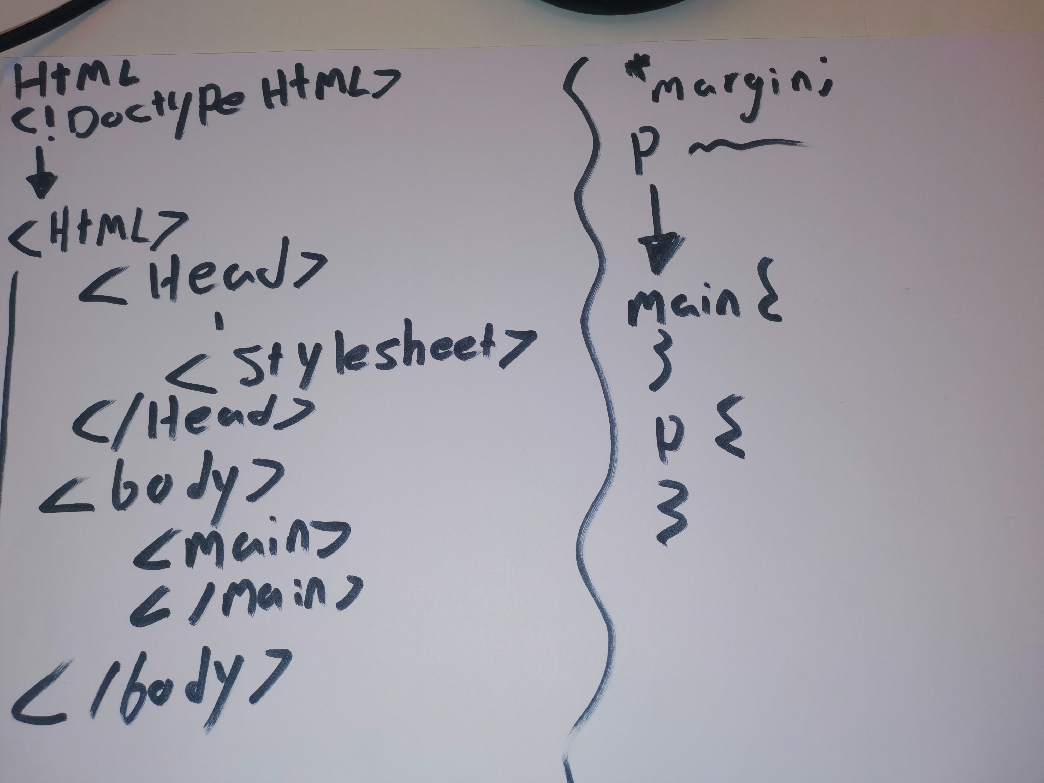 HtML
<!Doctype HtML>
<HtML>
<Head>
<stylesheet>
</Head>
<body>
<main>
</main>
</body>
*margin;
p
main {
}
p {
}